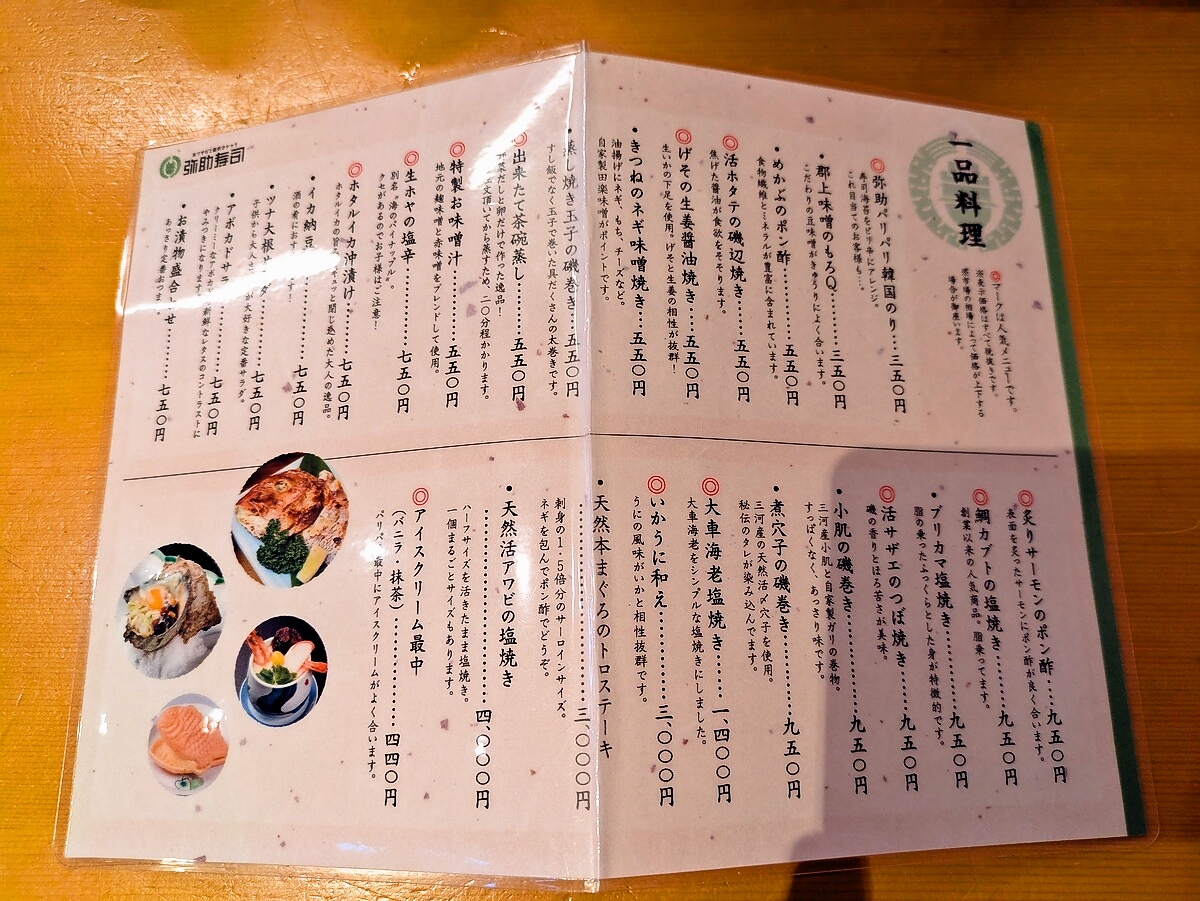 一品料理
◎マークは人気メニューです。
※表示価格はすべて税抜きです。
※市場の相場によって価格が上下する
場合が御座います。
◎弥助パリパリ韓国のり……三五〇円
寿司海苔をピリ辛にアレンジ。
これ目当てのお客様も…。
・郡上味噌のもろQ……三五〇円
こだわりの豆味噌がきゅうりによく合います。
・めかぶのポン酢……五五〇円
食物繊維とミネラルが豊富に含まれています。
◎活ホタテの磯辺焼き……五五〇円
焦げた醤油が食欲をそそります。
◎げその生姜醤油焼き……五五〇円
生いかの下足を使用。げそと生姜の相性が抜群!
・きつねのネギ味噌焼き……五五〇円
油揚げにネギ、もち、チーズなど。
自家製田楽味噌がポイントです。
・蒸し焼き玉子の磯巻き……五五〇円
すし飯でなく玉子で巻いた具だくさんの太巻きです。
◎出来たて茶碗蒸し……五五〇円
だしと卵だけで作った逸品!
文頂いてから蒸すため、二〇分程かかります。
◎特製お味噌汁……五五〇円
地元の麹味噌と赤味噌をブレンドして使用。
◎生ホヤの塩辛……七五〇円
別名“海のパイナップル”。
クセがあるのでお子様はご注意!
◎ホタルイカ沖漬け……七五〇円
ホタルイカの旨味をギュッと閉じ込めた大人の逸品。
・イカ納豆……七五〇円
酒の肴におすすめです!
・ツナ大根サラダ……七五〇円
子供から大人まで大好きな定番サラダ。
・アボカドサラダ……七五〇円
クリーミーなアボカドと新鮮なレタスのコントラストに
やみつきになります。
・お漬物盛合わせ……七五〇円
あっさり定番おつまみ。
弥助寿司
◎炙りサーモンのポン酢……九五〇円
表面を炙ったサーモンにポン酢が良く合います。
◎鯛カブトの塩焼き……九五〇円
創業以来の人気商品。脂乗ってます。
・ブリカマ塩焼き……九五〇円
脂の乗ったふっくらとした身が特徴的です。
◎活サザエのつぼ焼き……九五〇円
磯の香りとほろ苦さが美味。
・小肌の磯巻き……九五〇円
三河産小肌と自家製ガリの巻物。
すっぱくなく、あっさり味です。
・煮穴子の磯巻き……九五〇円
三河産の天然活〆穴子を使用。
秘伝のタレが染み込んでます。
◎大車海老塩焼き……一、四〇〇円
大車海老をシンプルな塩焼きにしました。
◎いかうに和え……三、〇〇〇円
うにの風味がいかと相性抜群です。
・天然本まぐろのトロステーキ
……三、〇〇〇円
刺身の1.5倍分のサーロインサイズ。
ネギを包んでポン酢でどうぞ。
・天然活アワビの塩焼き
……四、〇〇〇円
ハーフサイズを活きたまま塩焼き。
一個まるごとサイズもあります。
◎アイスクリーム最中
(バニラ・抹茶)……四四〇円
パリパリ最中にアイスクリームがよく合います。